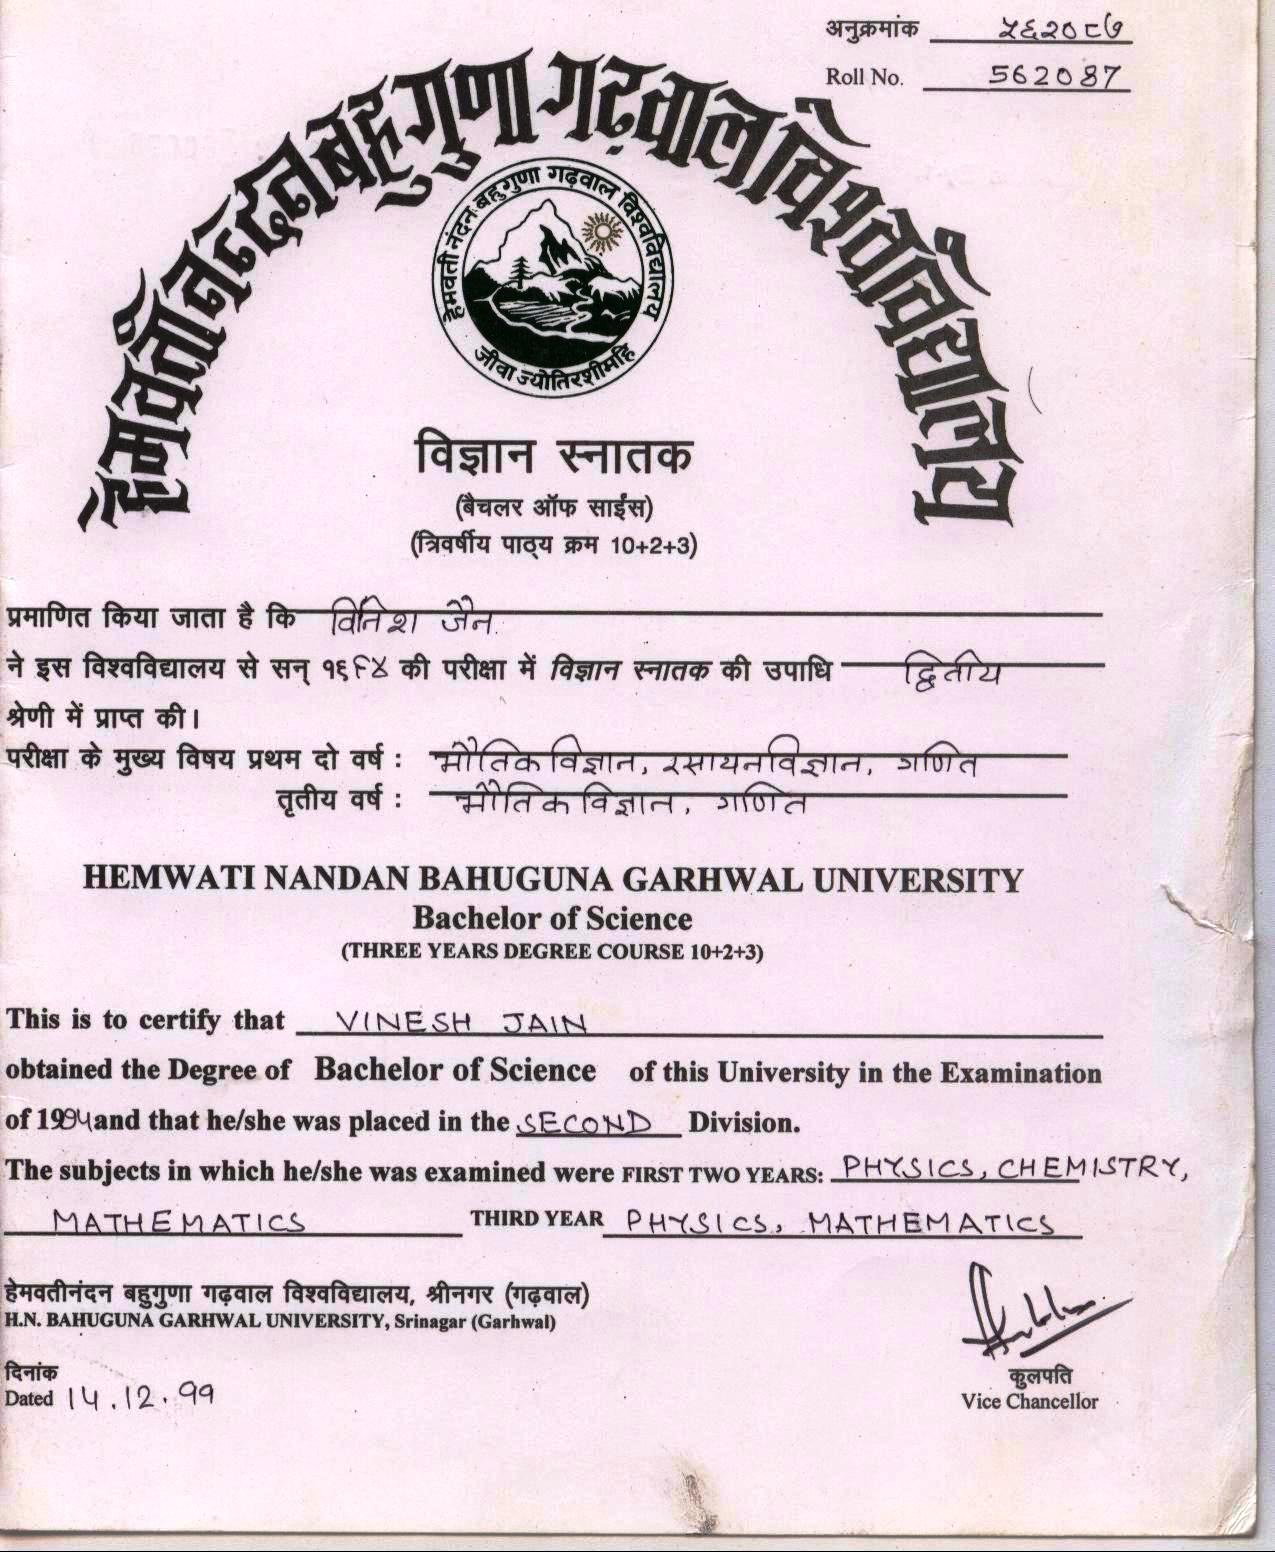 अनुक्रमांक ५६२०८७
Roll No. 562087
हेमवती नन्दन बहुगुणा गढ़वाल विश्वविद्यालय
हेमवती नंदन बहुगुणा गढ़वाल विश्वविद्यालय
जीवा ज्योतिरशीमहि
विज्ञान स्नातक
(बैचलर ऑफ साईंस)
(त्रिवर्षीय पाठ्य क्रम 10+2+3)
प्रमाणित किया जाता है कि विनिश जैन
ने इस विश्वविद्यालय से सन् १९९४ की परीक्षा में विज्ञान स्नातक की उपाधि द्वितीय
श्रेणी में प्राप्त की।
परीक्षा के मुख्य विषय प्रथम दो वर्ष : भौतिक विज्ञान, रसायन विज्ञान, गणित
तृतीय वर्ष : भौतिक विज्ञान, गणित
HEMWATI NANDAN BAHUGUNA GARHWAL UNIVERSITY
Bachelor of Science
(THREE YEARS DEGREE COURSE 10+2+3)
This is to certify that VINESH JAIN
obtained the Degree of Bachelor of Science of this University in the Examination
of 1994 and that he/she was placed in the SECOND Division.
The subjects in which he/she was examined were FIRST TWO YEARS: PHYSICS, CHEMISTRY,
MATHEMATICS THIRD YEAR PHYSICS, MATHEMATICS
हेमवतीनंदन बहुगुणा गढ़वाल विश्वविद्यालय, श्रीनगर (गढ़वाल)
H.N. BAHUGUNA GARHWAL UNIVERSITY, Srinagar (Garhwal)
दिनांक
Dated 14.12.99
कुलपति
Vice Chancellor